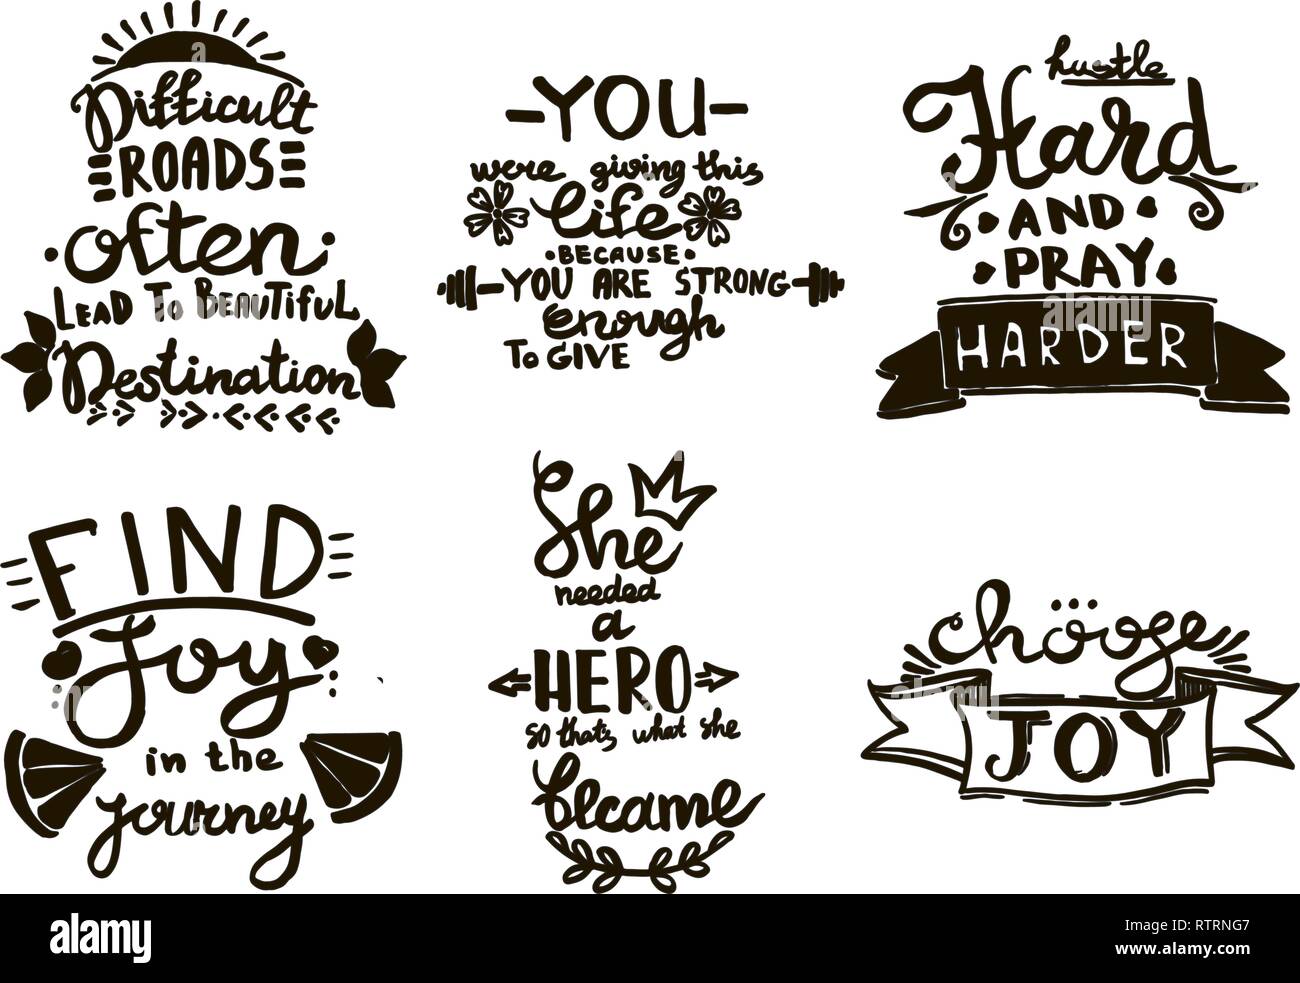 Difficult
ROADS
often
LEAD TO BEAUTIFUL
Destination
YOU
were giving this
life
BECAUSE
YOU ARE STRONG
enough
TO GIVE
hustle
Hard
AND
PRAY
HARDER
FIND
Joy
in the
journey
She
needed
a
HERO
so that's what she
became
choose
JOY
alamy
Image ID: RTRNG7
www.alamy.com